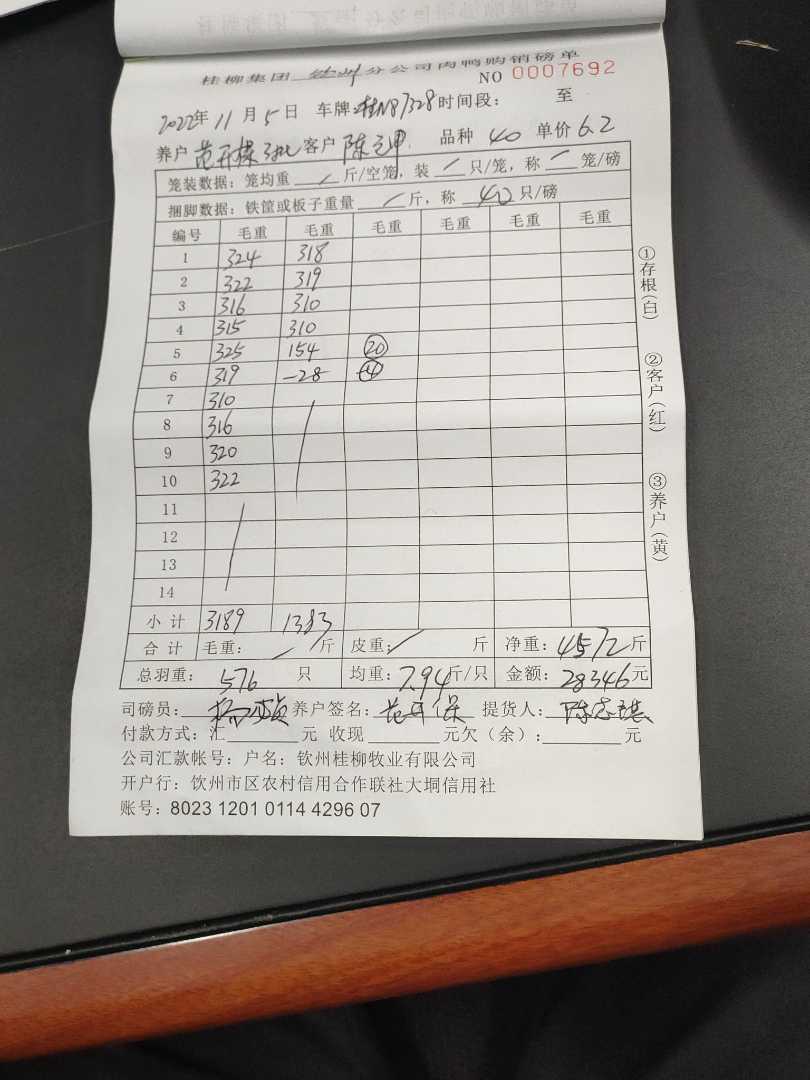 桂柳集团 钦州 分公司肉鸭购销磅单
NO 0007692
2022年 11 月 5 日 车牌:桂N87328 时间段: 至
养户 范开 3批 客户 陈 品种 40 单价 6.2
笼装数据：笼均重 / 斤/空笼，装 / 只/笼，称 / 笼/磅
捆脚数据：铁筐或板子重量 / 斤，称 40 只/磅
编号 毛重 毛重 毛重 毛重 毛重 毛重
1 324 318
2 322 319
3 316 310
4 315 310
5 325 154 20
6 319 -28 -4
7 310
8 316
9 320
10 322
11
12
13
14
小计 3189 1383
合计 毛重: / 斤 皮重: / 斤 净重: 4572 斤
总羽重: 576 只 均重: 7.94 斤/只 金额: 28346 元
司磅员: 杨 养户签名: 范开保 提货人: 陈
付款方式：汇 元 收现 元欠（余）: 元
公司汇款帐号：户名：钦州桂柳牧业有限公司
开户行：钦州市区农村信用合作联社大垌信用社
账号：8023 1201 0114 4296 07
①存根(白)
②客户(红)
③养户(黄)